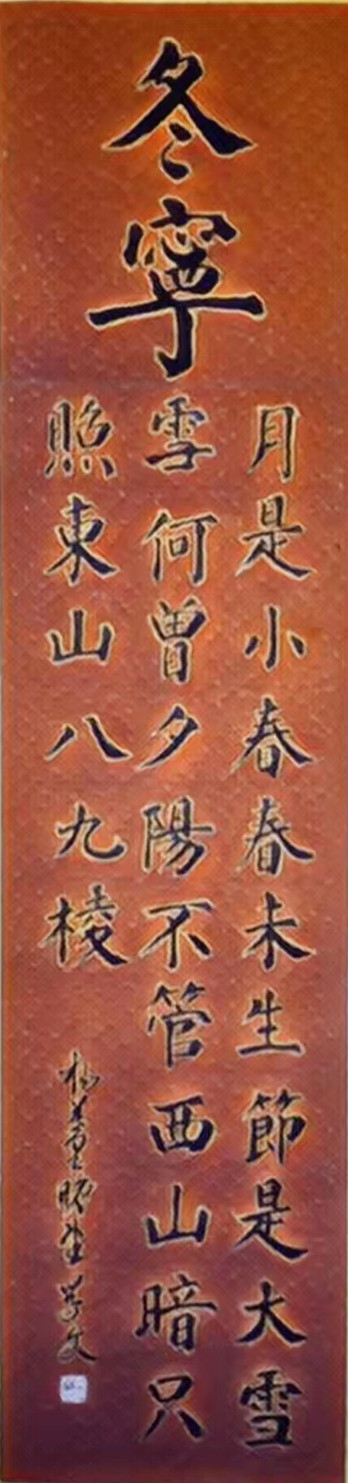 冬寧
月是小春春未生節是大雪
雪何曽夕陽不管西山暗只
照東山八九棱